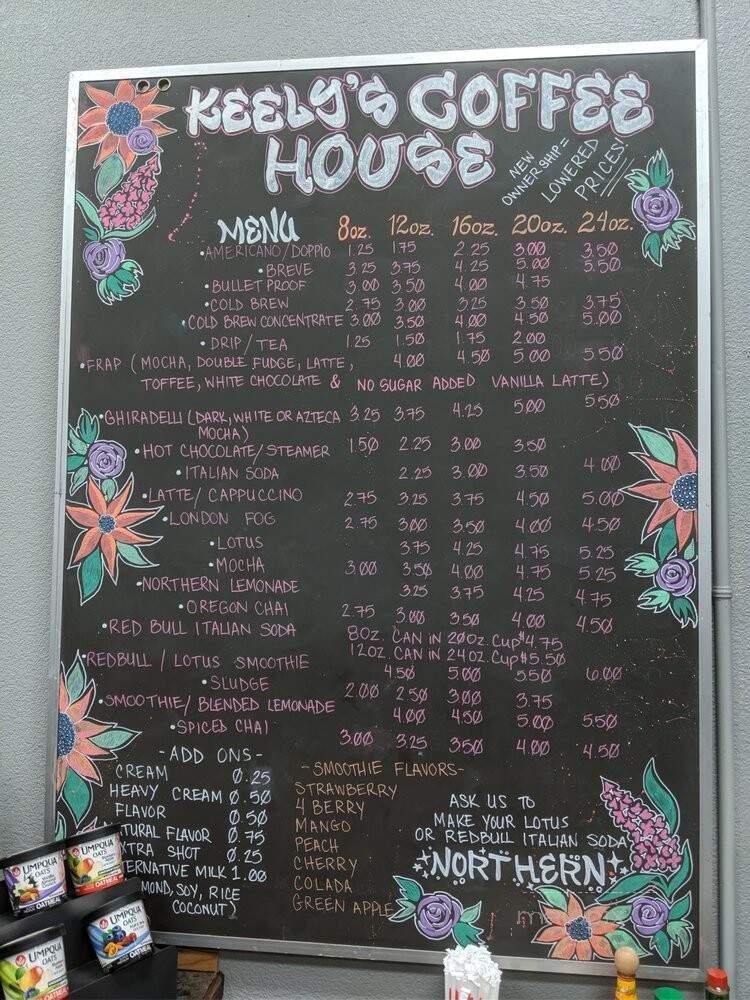 KEELY'S COFFEE
HOUSE
NEW
OWNERSHIP =
LOWERED
PRICES!
MENU 8oz. 12oz. 16oz. 20oz. 24oz.
•AMERICANO/DOPPIO 1.25 1.75 2.25 3.00 3.50
•BREVE 3.25 3.75 4.25 5.00 5.50
•BULLET PROOF 3.00 3.50 4.00 4.75
•COLD BREW 2.75 3.00 3.25 3.50 3.75
•COLD BREW CONCENTRATE 3.00 3.50 4.00 4.50 5.00
•DRIP/TEA 1.25 1.50 1.75 2.00
•FRAP (MOCHA, DOUBLE FUDGE, LATTE, 4.00 4.50 5.00 5.50
TOFFEE, WHITE CHOCOLATE & NO SUGAR ADDED VANILLA LATTE)
•GHIRADELLI (DARK, WHITE OR AZTECA 3.25 3.75 4.25 5.00 5.50
MOCHA)
•HOT CHOCOLATE/STEAMER 1.50 2.25 3.00 3.50
•ITALIAN SODA 2.25 3.00 3.50 4.00
•LATTE/CAPPUCCINO 2.75 3.25 3.75 4.50 5.00
•LONDON FOG 2.75 3.00 3.50 4.00 4.50
•LOTUS 3.75 4.25 4.75 5.25
•MOCHA 3.00 3.50 4.00 4.75 5.25
•NORTHERN LEMONADE 3.25 3.75 4.25 4.75
•OREGON CHAI 2.75 3.00 3.50 4.00 4.50
•RED BULL ITALIAN SODA 8oz. CAN IN 20oz. CUP $4.75
12oz. CAN IN 24oz. CUP $5.50
•REDBULL / LOTUS SMOOTHIE 4.50 5.00 5.50 6.00
•SLUDGE 2.00 2.50 3.00 3.75
•SMOOTHIE/BLENDED LEMONADE 4.00 4.50 5.00 5.50
•SPICED CHAI 3.00 3.25 3.50 4.00 4.50
-ADD ONS-
CREAM 0.25
HEAVY CREAM 0.50
FLAVOR 0.50
NATURAL FLAVOR 0.75
EXTRA SHOT 0.25
ALTERNATIVE MILK 1.00
ALMOND, SOY, RICE
COCONUT)
-SMOOTHIE FLAVORS-
STRAWBERRY
4 BERRY
MANGO
PEACH
CHERRY
COLADA
GREEN APPLE
ASK US TO
MAKE YOUR LOTUS
OR REDBULL ITALIAN SODA
NORTHERN
UMPQUA
OATS
UMPQUA
OATS
OATMEAL
UMPQUA
OATS
OATMEAL
UMPQUA
OATS
OATMEAL